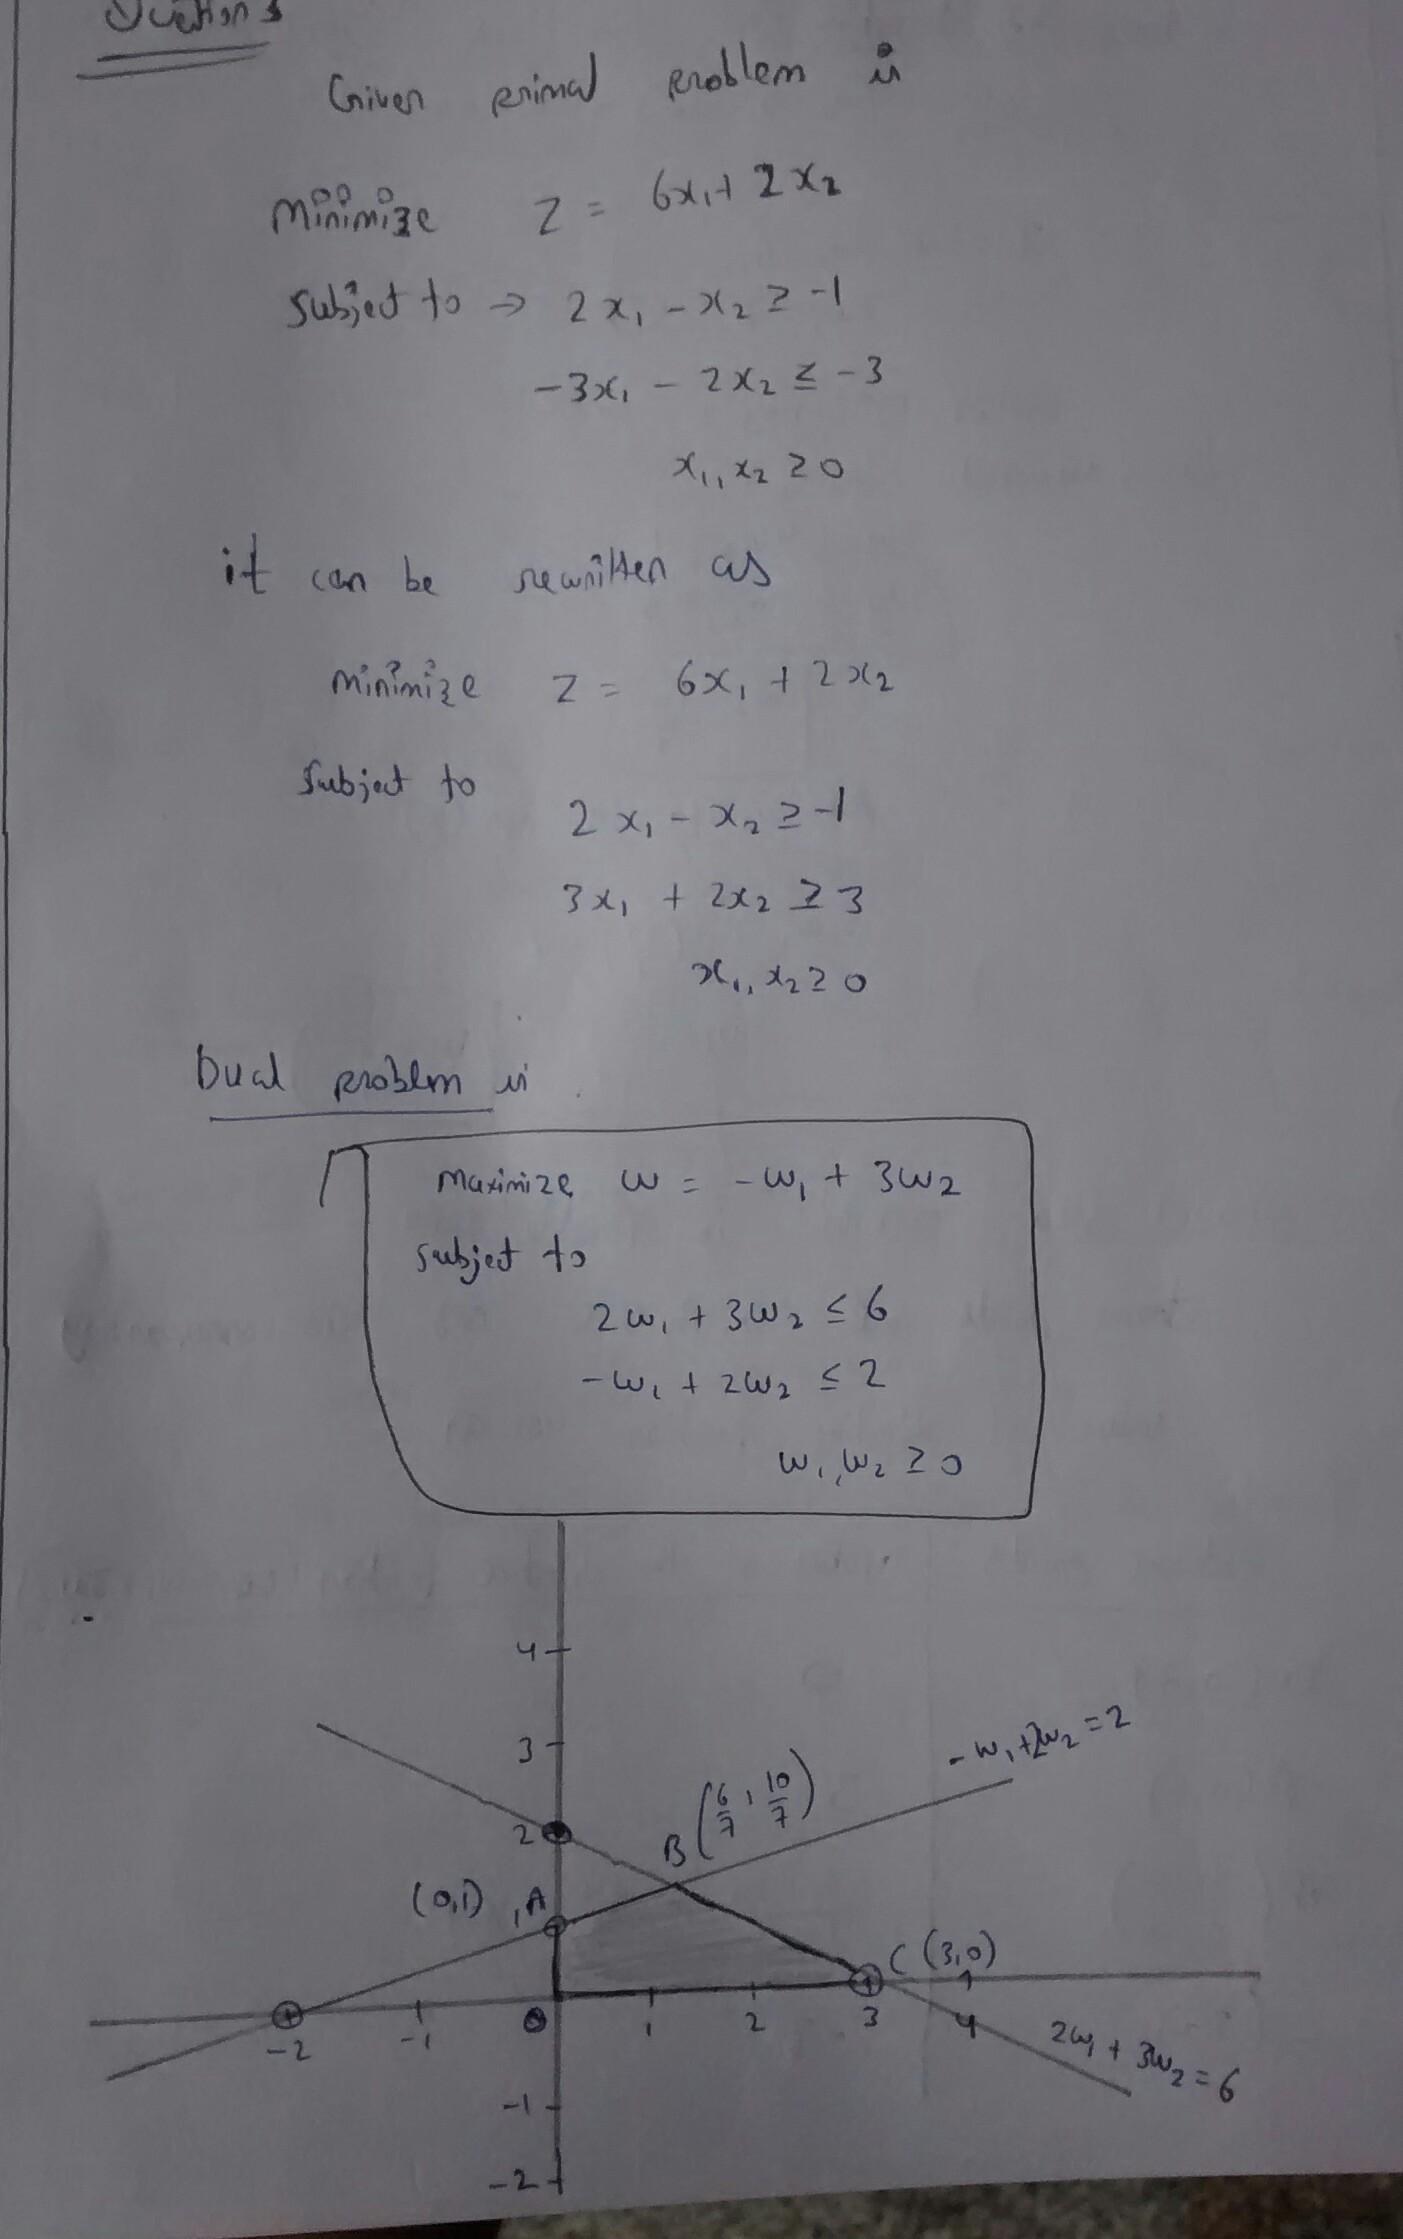 Question 3
Given primal problem is
Minimize Z = 6x₁ + 2x₂
Subject to → 2x₁ - x₂ ≥ -1
-3x₁ - 2x₂ ≤ -3
x₁, x₂ ≥ 0
it can be rewritten as
Minimize Z = 6x₁ + 2x₂
Subject to
2x₁ - x₂ ≥ -1
3x₁ + 2x₂ ≥ 3
x₁, x₂ ≥ 0
Dual problem is
Maximize W = -W₁ + 3W₂
Subject to
2W₁ + 3W₂ ≤ 6
-W₁ + 2W₂ ≤ 2
W₁, W₂ ≥ 0
4
3
-W₁ + 2W₂ = 2
2
B (6/7, 10/7)
(0,1) A
C (3,0)
-2 -1 0 1 2 3 4
2W₁ + 3W₂ = 6
-1
-2